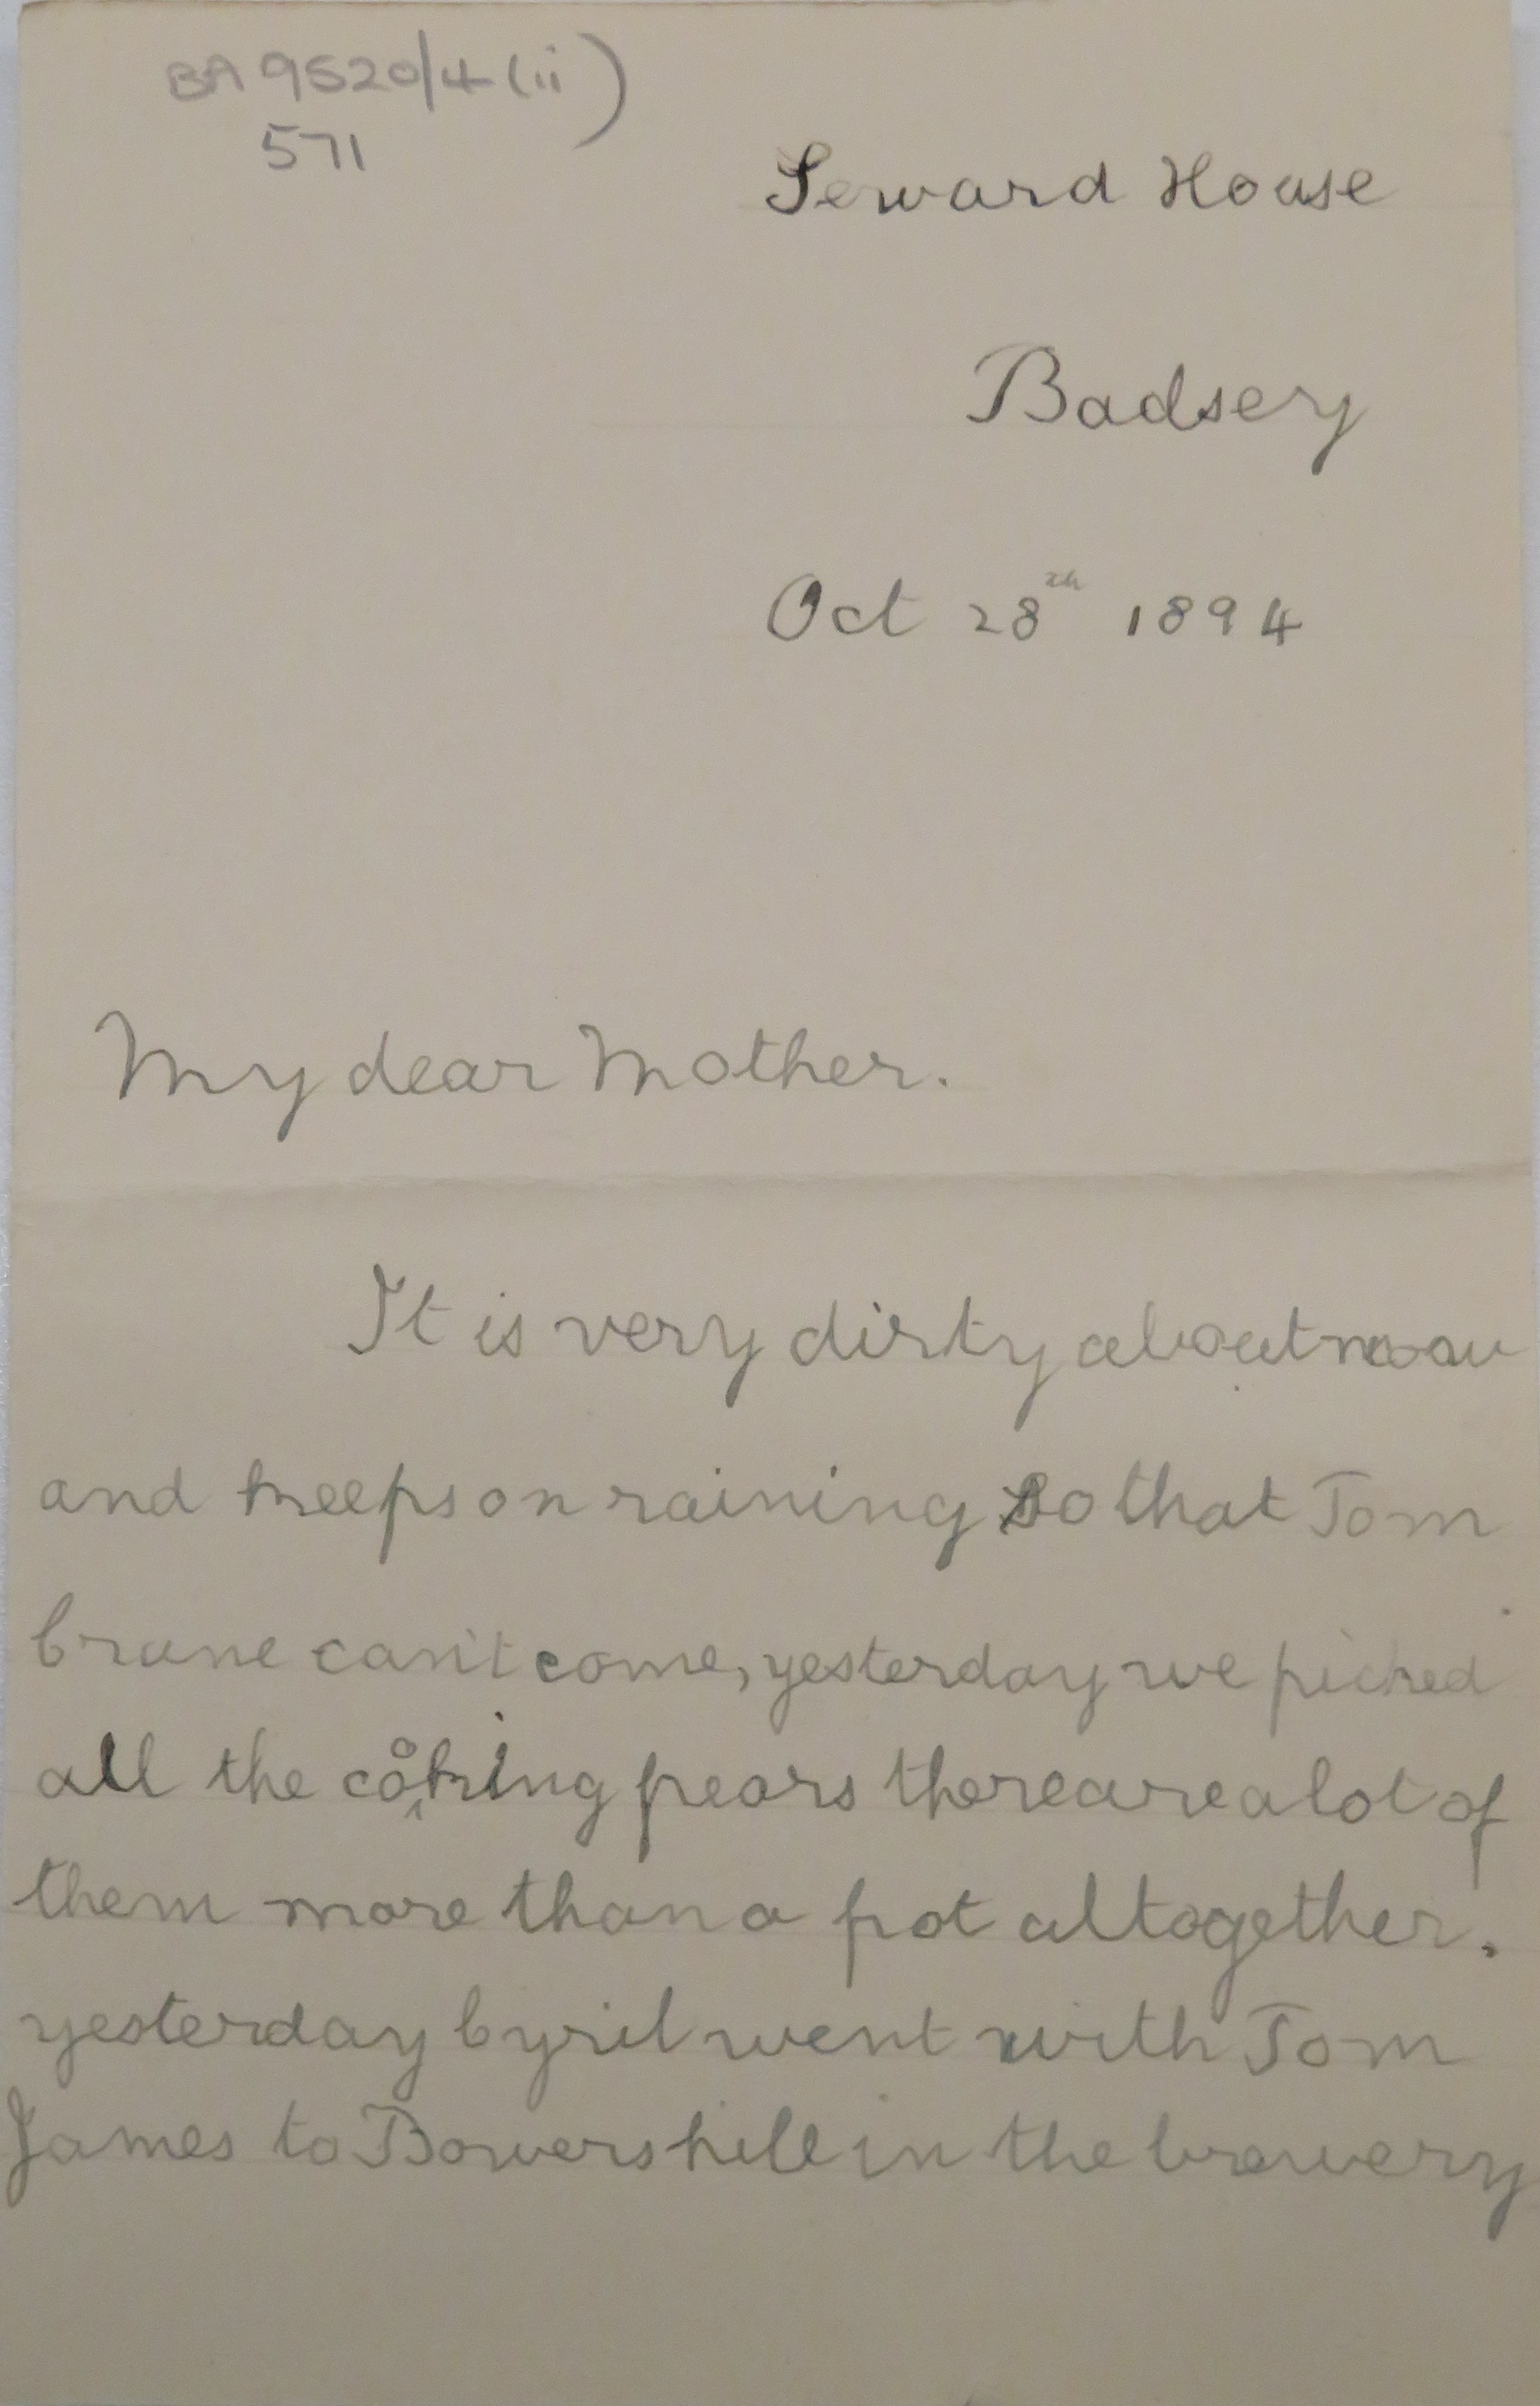 BA 9520/4 (ii)
571
Seward House
Badsey
Oct 28th 1894
My dear Mother.
It is very dirty about now
and keeps on raining so that Tom
Crane can't come, yesterday we picked
all the cooking pears there are a lot of
them more than a pot altogether.
yesterday Cyril went with Tom
James to Bowers hill in the brewery